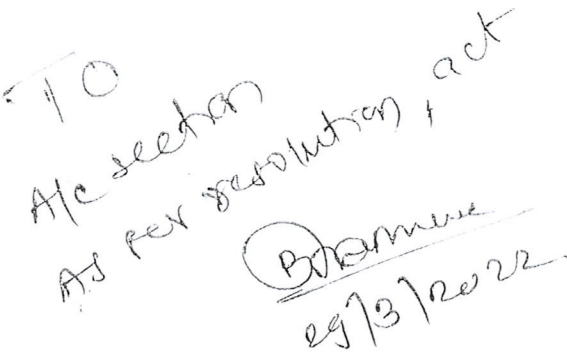 TO
A/c section
As per resolution, act
29/3/2022.